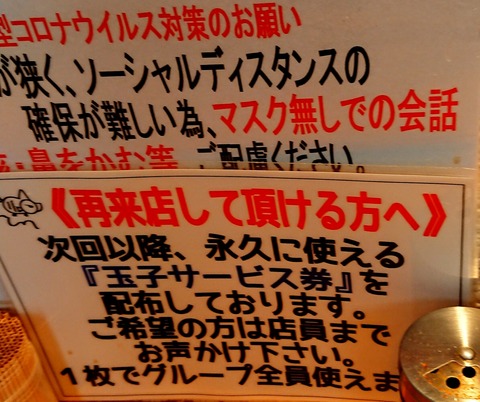 型コロナウイルス対策のお願い
が狭く、ソーシャルディスタンスの
確保が難しい為、マスク無しでの会話
鼻をかむ等、ご配慮ください。
《再来店して頂ける方へ》
次回以降、永久に使える
『玉子サービス券』を
配布しております。
ご希望の方は店員まで
お声かけ下さい。
1枚でグループ全員使えま